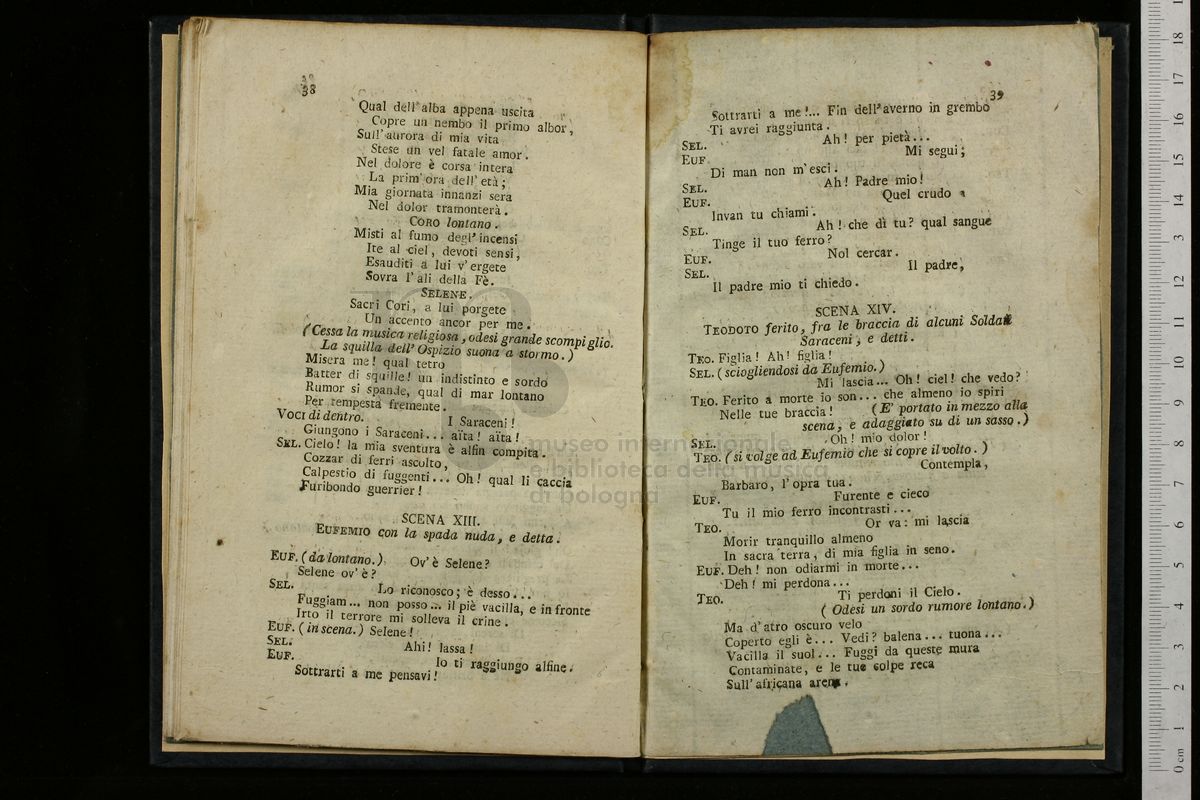 38
Qual dell'alba appena uscita
Copre un nembo il primo albor,
Sull'aurora di mia vita
Stese un vel fatale amor.
Nel dolore è corsa intera
La prim' ora dell' età;
Mia giornata innanzi sera
Nel dolor tramonterà.
CORO lontano.
Misti al fumo degl' incensi
Ite al ciel, devoti sensi,
Esauditi a lui v' ergete
Sovra l' ali della Fè.
SELENE.
Sacri Cori, a lui porgete
Un accento ancor per me.
(Cessa la musica religiosa, odesi grande scompiglio.
La squilla dell' Ospizio suona a stormo.)
Misera me! qual tetro
Batter di squille! un indistinto e sordo
Rumor si spande, qual di mar lontano
Per tempesta fremente.
VOCI di dentro. I Saraceni!
Giungono i Saraceni... aïta! aïta!
SEL. Cielo! la mia sventura è alfin compita.
Cozzar di ferri ascolto,
Calpestio di fuggenti... Oh! qual li caccia
Furibondo guerrier!
SCENA XIII.
EUFEMIO con la spada nuda, e detta.
EUF. (da lontano.) Ov' è Selene?
Selene ov' è?
SEL. Lo riconosco; è desso...
Fuggiam... non posso... il piè vacilla, e in fronte
Irto il terrore mi solleva il crine.
EUF. (in scena.) Selene!
SEL. Ahi! lassa!
EUF. Io ti raggiungo alfine.
Sottrarti a me pensavi!
39
Sottrarti a me!... Fin dell' averno in grembo
Ti avrei raggiunta.
SEL. Ah! per pietà...
EUF. Mi segui;
Di man non m' esci.
SEL. Ah! Padre mio!
EUF. Quel crudo
Invan tu chiami.
SEL. Ah! che di tu? qual sangue
Tinge il tuo ferro?
EUF. Nol cercar.
SEL. Il padre,
Il padre mio ti chiedo.
SCENA XIV.
TEODOTO ferito, fra le braccia di alcuni Soldati
Saraceni, e detti.
TEO. Figlia! Ah! figlia!
SEL. (sciogliendosi da Eufemio.)
Mi lascia... Oh! ciel! che vedo?
TEO. Ferito a morte io son... che almeno io spiri
Nelle tue braccia! (E' portato in mezzo alla
scena, e adagiato su di un sasso.)
SEL. Oh! mio dolor!
TEO. (si volge ad Eufemio che si copre il volto.)
Contempla,
Barbaro, l' opra tua.
EUF. Furente e cieco
Tu il mio ferro incontrasti...
TEO. Or va: mi lascia
Morir tranquillo almeno
In sacra terra, di mia figlia in seno.
EUF. Deh! non odiarmi in morte...
Deh! mi perdona...
TEO. Ti perdoni il Cielo.
(Odesi un sordo rumore lontano.)
Ma d' atro oscuro velo
Coperto egli è... Vedi? balena... tuona...
Vacilla il suol... Fuggi da queste mura
Contaminate, e le tue colpe reca
Sull' africana arena.
museo internazionale
e biblioteca della musica
di bologna
0 cm 1 2 3 4 5 6 7 8 9 10 11 12 13 14 15 16 17 18